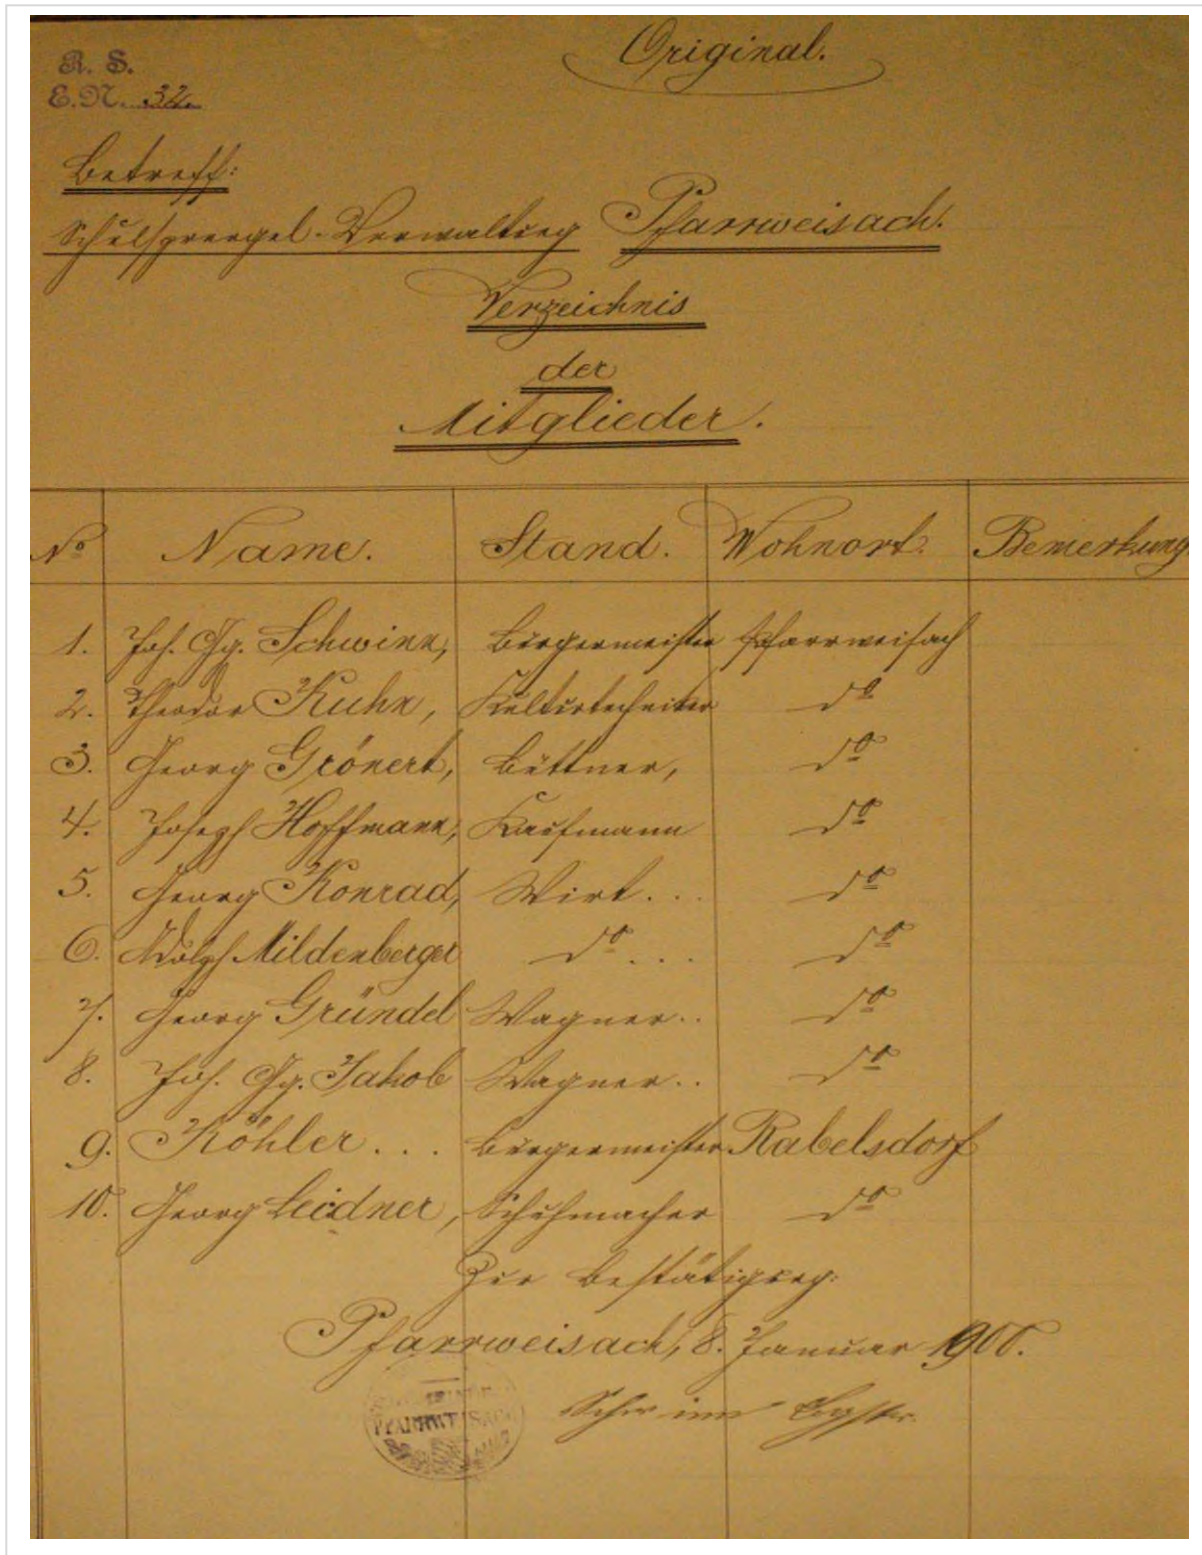 Original.
R. S.
E. N. 32.
Betreff:
Schulsprengel-Verwaltung Pfarrweisach.
Verzeichnis
der
Mitglieder.
No Name. Stand. Wohnort. Bemerkung
1. Joh. Gg. Schwinn, Bürgermeister Pfarrweisach
2. Theodor Kuhn, Kulturtechniker do
3. Georg Grönert, Büttner, do
4. Joseph Hoffmann, Kaufmann do
5. Georg Konrad, Wirt... do
6. Adolph Mildenberger do... do
7. Georg Gründel Wagner.. do
8. Joh. Gg. Jakob Wagner.. do
9. Köhler... Bürgermeister Rabelsdorf
10. Georg Leidner, Schuhmacher do
Zur Bestätigung:
Pfarrweisach, 8. Januar 1900.
Schwinn Bgstr.
PFARRWEISACH